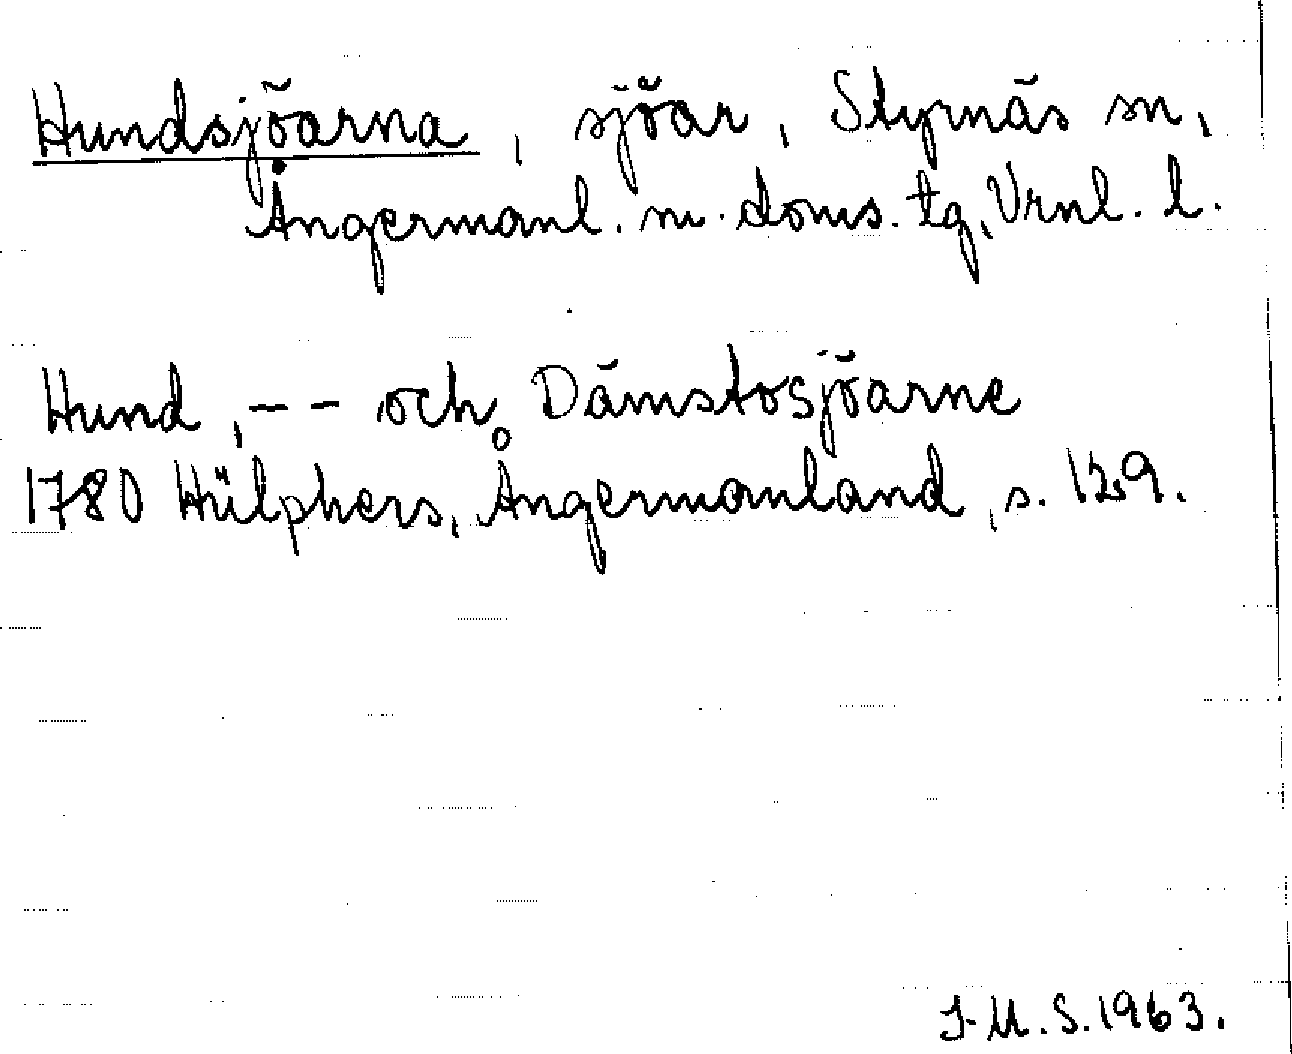 Hundsjöarna, sjöar, Styrnäs sn,
Ångermanl. m. doms. tg, Vrnl. l.
Hund, -- och Dämstosjöarne
1780 Hülphers, Ångermanland, s. 129.
J.M.S. 1963.